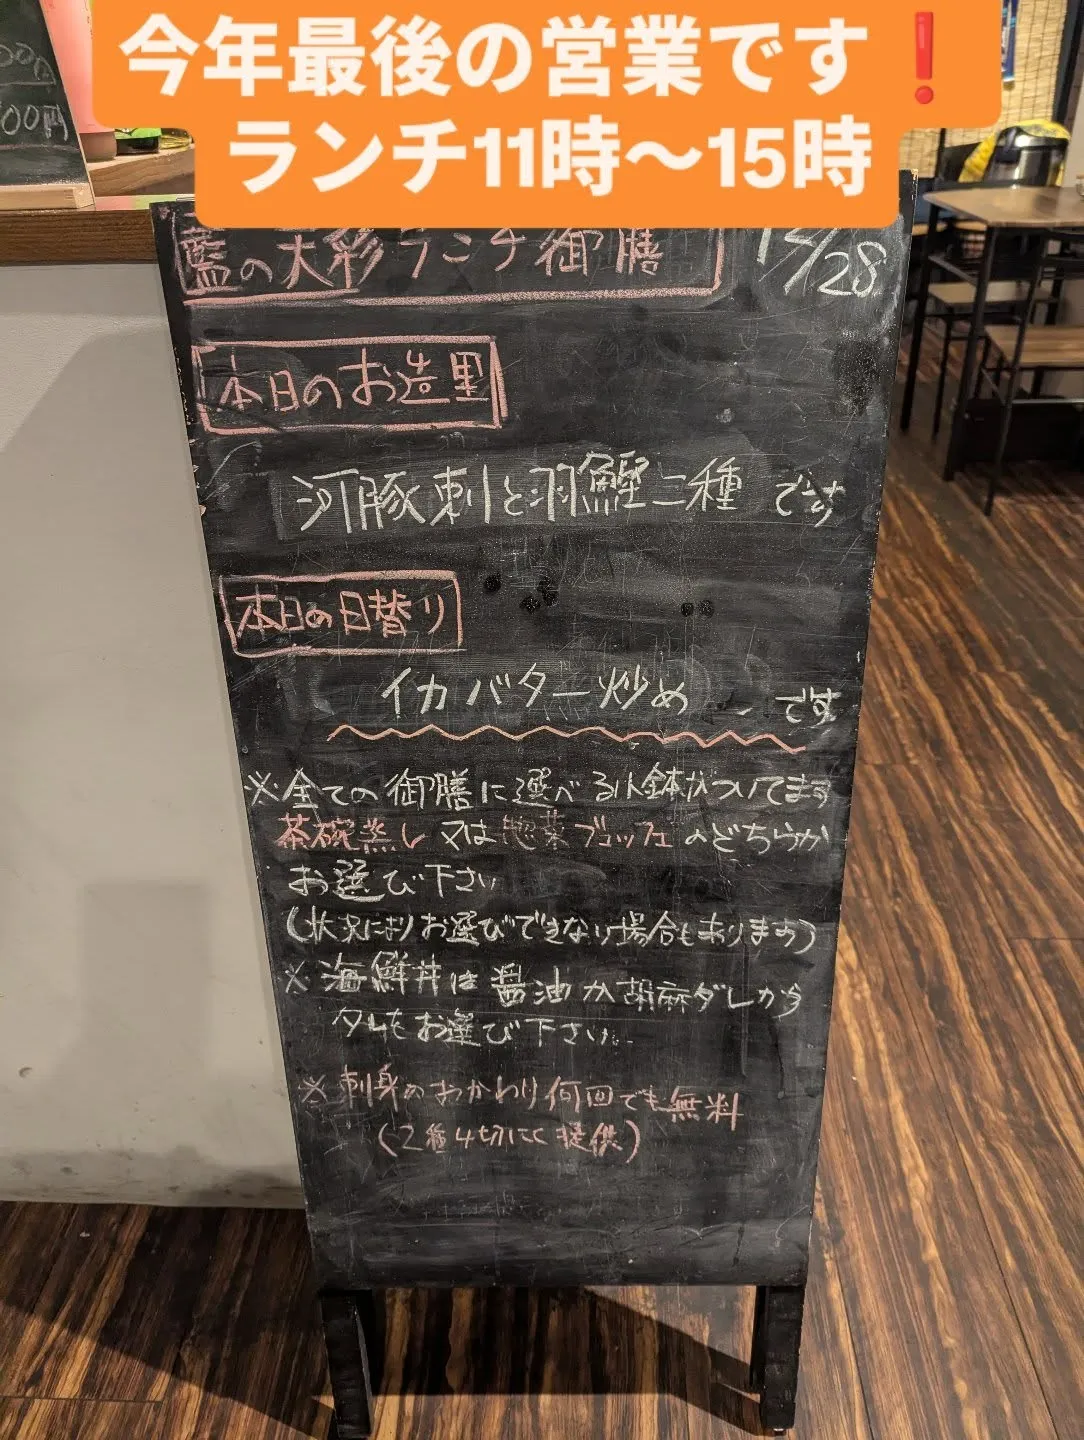 今年最後の営業です❗
ランチ11時〜15時
00円
藍の天彩ランチ御膳 12/28
本日のお造里
河豚刺と羽鰹二種です
本日の日替り
イカバター炒めです
※全ての御膳に選べる小鉢がついてます
茶碗蒸し又は惣菜ブュッフェのどちらか
お選び下さい
(状況によりお選びできない場合もあります)
※海鮮丼は醤油か胡麻ダレから
タレもお選び下さい
※刺身のおかわり何回でも無料
(2種4切にて提供)